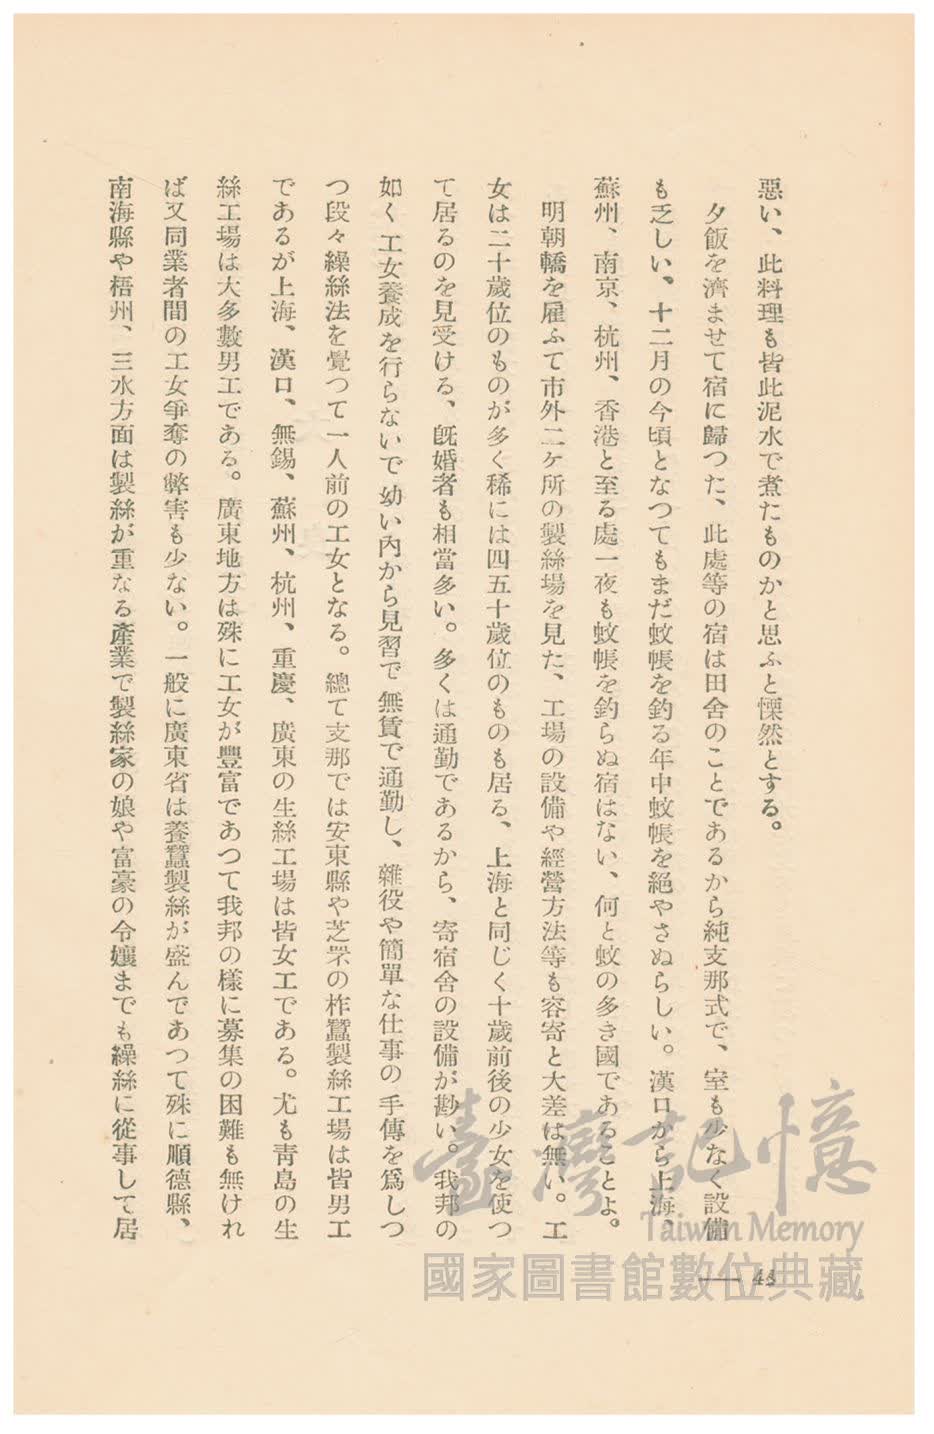 惡い、此料理も皆此泥水で煮たものかと思ふと慄然とする。
夕飯を濟ませて宿に歸つた、此處等の宿は田舍のことであるから純支那式で、室も少なく設備
も乏しい、十二月の今頃となつてもまだ蚊帳を釣る年中蚊帳を絕やさぬらしい。漢口から上海、
蘇州、南京、杭州、香港と至る處一夜も蚊帳を釣らぬ宿はない、何と蚊の多き國であることよ。
明朝轎を雇ふて市外二ヶ所の製絲場を見た、工場の設備や經營方法等も容寄と大差は無い。工
女は二十歲位のものが多く稀には四五十歲位のものも居る、上海と同じく十歲前後の少女を使つ
て居るのを見受ける、旣婚者も相當多い。多くは通勤であるから、寄宿舍の設備が尠い。我邦の
如く工女養成を行らないで幼い內から見習で無賃で通勤し、雜役や簡單な仕事の手傳を爲しつ
つ段々繰絲法を覺つて一人前の工女となる。總て支那では安東縣や芝罘の柞蠶製絲工場は皆男工
であるが上海、漢口、無錫、蘇州、杭州、重慶、廣東の生絲工場は皆女工である。尤も靑島の生
絲工場は大多數男工である。廣東地方は殊に工女が豐富であつて我邦の樣に募集の困難も無けれ
ば又同業者間の工女爭奪の弊害も少ない。一般に廣東省は養蠶製絲が盛んであつて殊に順德縣、
南海縣や梧州、三水方面は製絲が重なる產業で製絲家の娘や富豪の令孃までも繰絲に從事して居
臺灣記憶
Taiwan Memory
國家圖書館數位典藏
—— 48